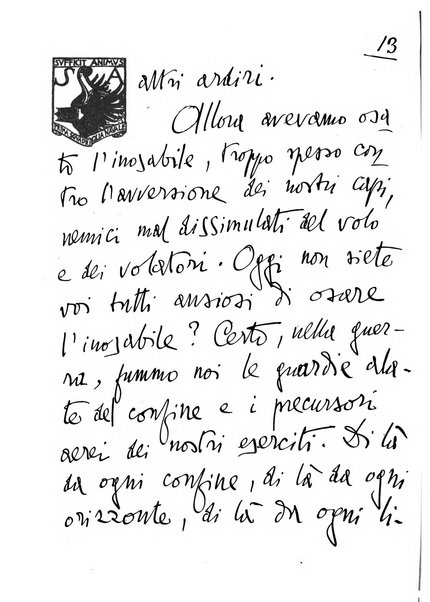 13
SVFFICIT ANIMVS
S A
altri ardiri.
Allora avevamo osa-
to l'inosabile, troppo spesso con-
tro l'avversione dei nostri capi,
nemici mal dissimulati del volo
e dei volatori. Oggi non siete
voi tutti ansiosi di osare
l'inosabile? Certo, nella guer-
ra, fummo noi le guardie ala-
te del confine e i precursori
aerei dei nostri eserciti. Di là
da ogni confine, di là da ogni
orizzonte, di là da ogni li-